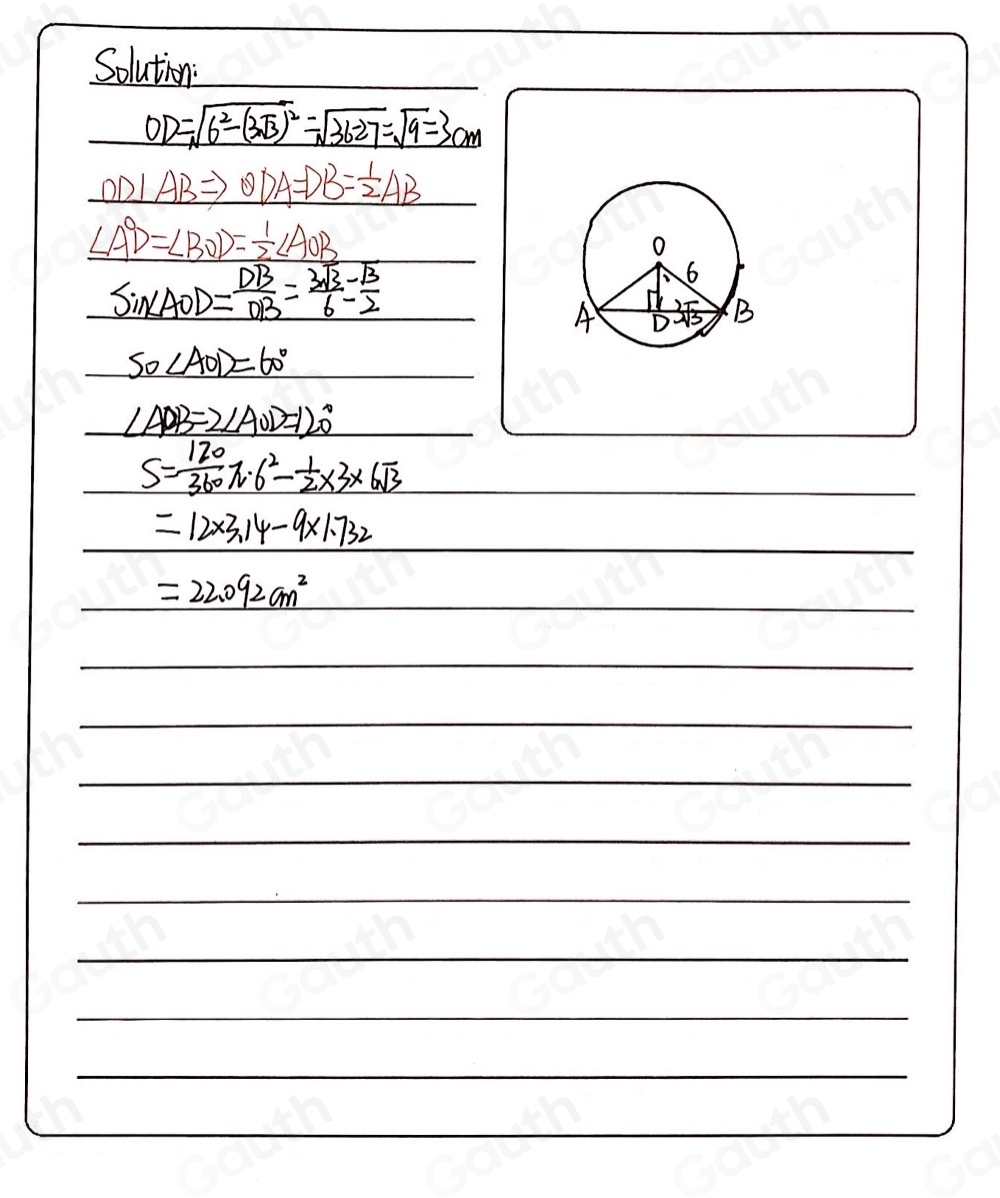 Solution:
OD=√(6²-(3√3)²)=√(36-27)=√9=3cm
OD⊥AB⇒①DA=DB=1/2AB
∠AOD=∠BOD=1/2∠AOB
Sin∠AOD=DB/OB=3√3/6=√3/2
So ∠AOD=60°
∠AOB=2∠AOD=120°
S=120/360π·6²-1/2×3×6√3
=12×3.14-9×1.732
=22.092cm²
O
6
A
D
3√3
B